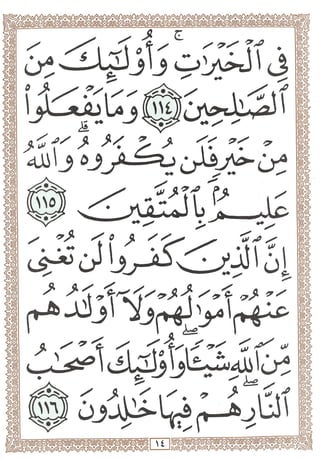 فِى ٱلْخَيْرَٰتِ ۚ وَأُو۟لَٰٓئِكَ مِنَ
ٱلصَّٰلِحِينَ ١١٤ وَمَا يَفْعَلُوا۟
مِنْ خَيْرٍ فَلَن يُكْفَرُوهُ ۗ وَٱللَّهُ
عَلِيمٌۢ بِٱلْمُتَّقِينَ ١١٥
إِنَّ ٱلَّذِينَ كَفَرُوا۟ لَن تُغْنِىَ
عَنْهُمْ أَمْوَٰلُهُمْ وَلَآ أَوْلَٰدُهُم
مِّنَ ٱللَّهِ شَيْـًٔا ۖ وَأُو۟لَٰٓئِكَ أَصْحَٰبُ
ٱلنَّارِ ۖ هُمْ فِيهَا خَٰلِدُونَ ١١٦
١٤